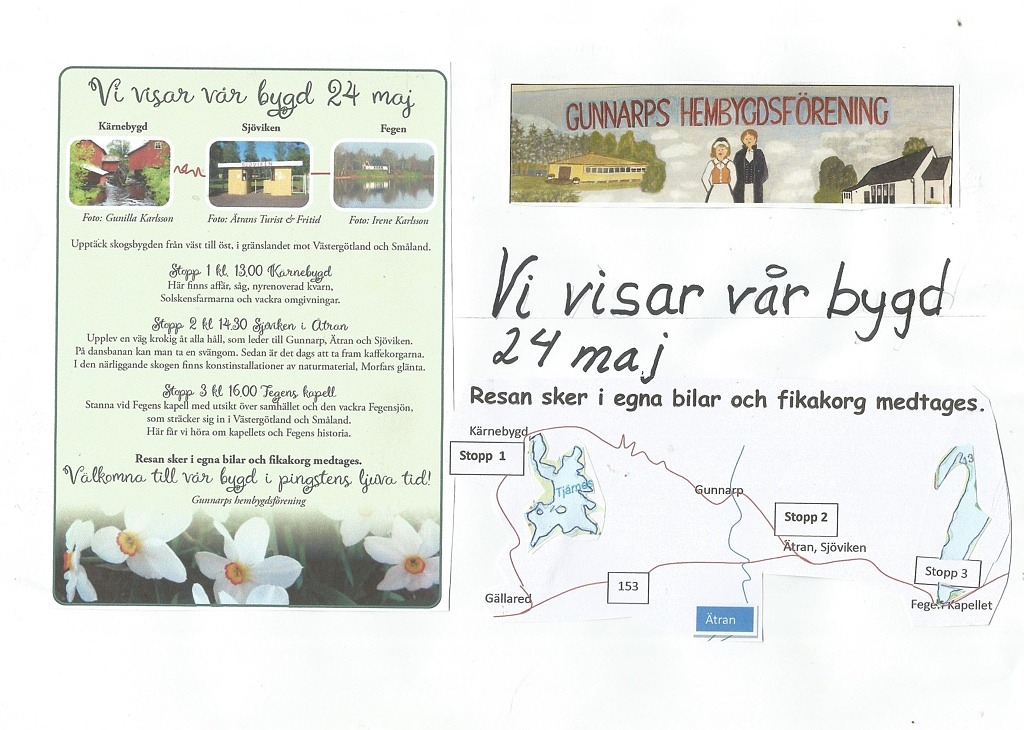 Vi visar vår bygd 24 maj
Kärnebygd Sjöviken Fegen
SJÖVIKEN
Foto: Gunilla Karlsson Foto: Ätrans Turist & Fritid Foto: Irene Karlsson
Upptäck skogsbygden från väst till öst, i gränslandet mot Västergötland och Småland.
Stopp 1 kl. 13.00 Kärnebygd
Här finns affär, såg, nyrenoverad kvarn,
Solskensfarmarna och vackra omgivningar.
Stopp 2 kl 14.30 Sjöviken i Ätran
Upplev en väg krokig åt alla håll, som leder till Gunnarp, Ätran och Sjöviken.
På dansbanan kan man ta en svängom. Sedan är det dags att ta fram kaffekorgarna.
I den närliggande skogen finns konstinstallationer av naturmaterial, Morfars glänta.
Stopp 3 kl 16.00 Fegens kapell
Stanna vid Fegens kapell med utsikt över samhället och den vackra Fegensjön,
som sträcker sig in i Västergötland och Småland.
Här får vi höra om kapellets och Fegens historia.
Resan sker i egna bilar och fikakorg medtages.
Välkomna till vår bygd i pingstens ljuva tid!
Gunnarps hembygdsförening
GUNNARPS HEMBYGDSFÖRENING
Vi visar vår bygd
24 maj
Resan sker i egna bilar och fikakorg medtages.
Kärnebygd
Stopp 1
Tjärnes
Gunnarp
Stopp 2
Ätran, Sjöviken
Stopp 3
Fegen Kapellet
153
Gällared
Ätran